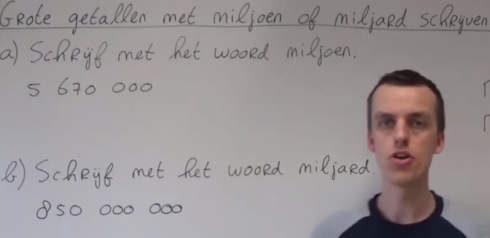 Grote getallen met miljoen of miljard schrijven
a) Schrijf met het woord miljoen.
5 670 000
b) Schrijf met het woord miljard.
850 000 000